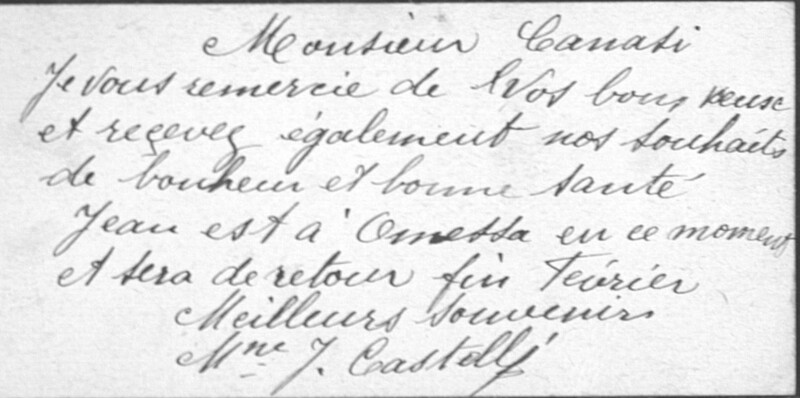 Monsieur Canasi
Je vous remercie de Vos bons veuse
et reçevez également nos souhaits
de bonheur et bonne santé
Jean est à Omessa en ce moment
et sera de retour fin Février
Meilleurs souvenirs
Mme J. Castelli